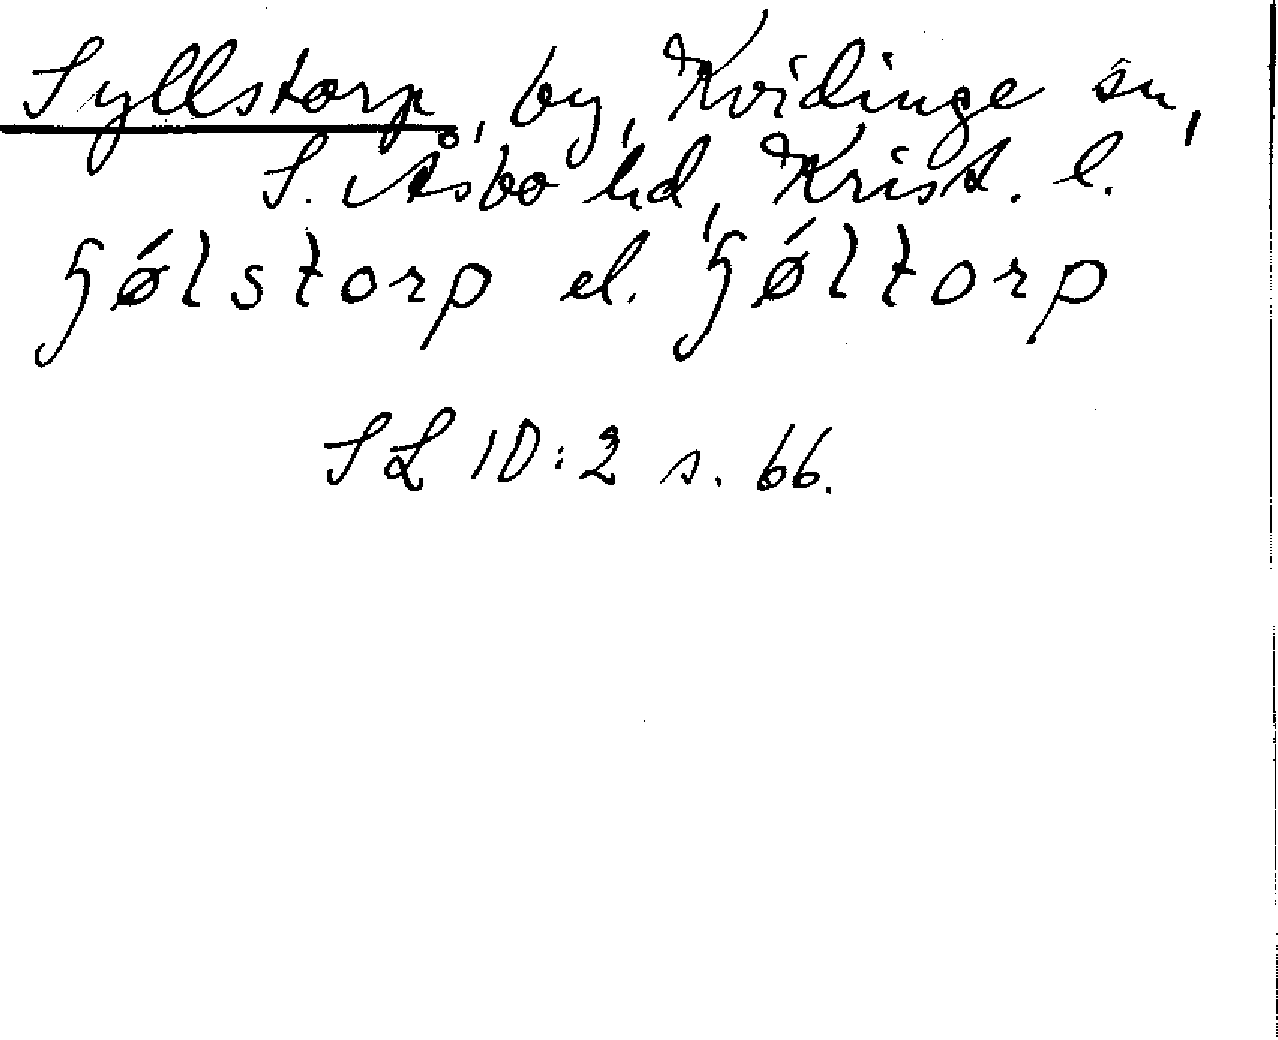 Syllstorp, by, Kvidinge sn,
S. Åsbo hd, Krist. l.
ɧǿlstorp el. ɧǿltorp
SL 10:2 s. 66.